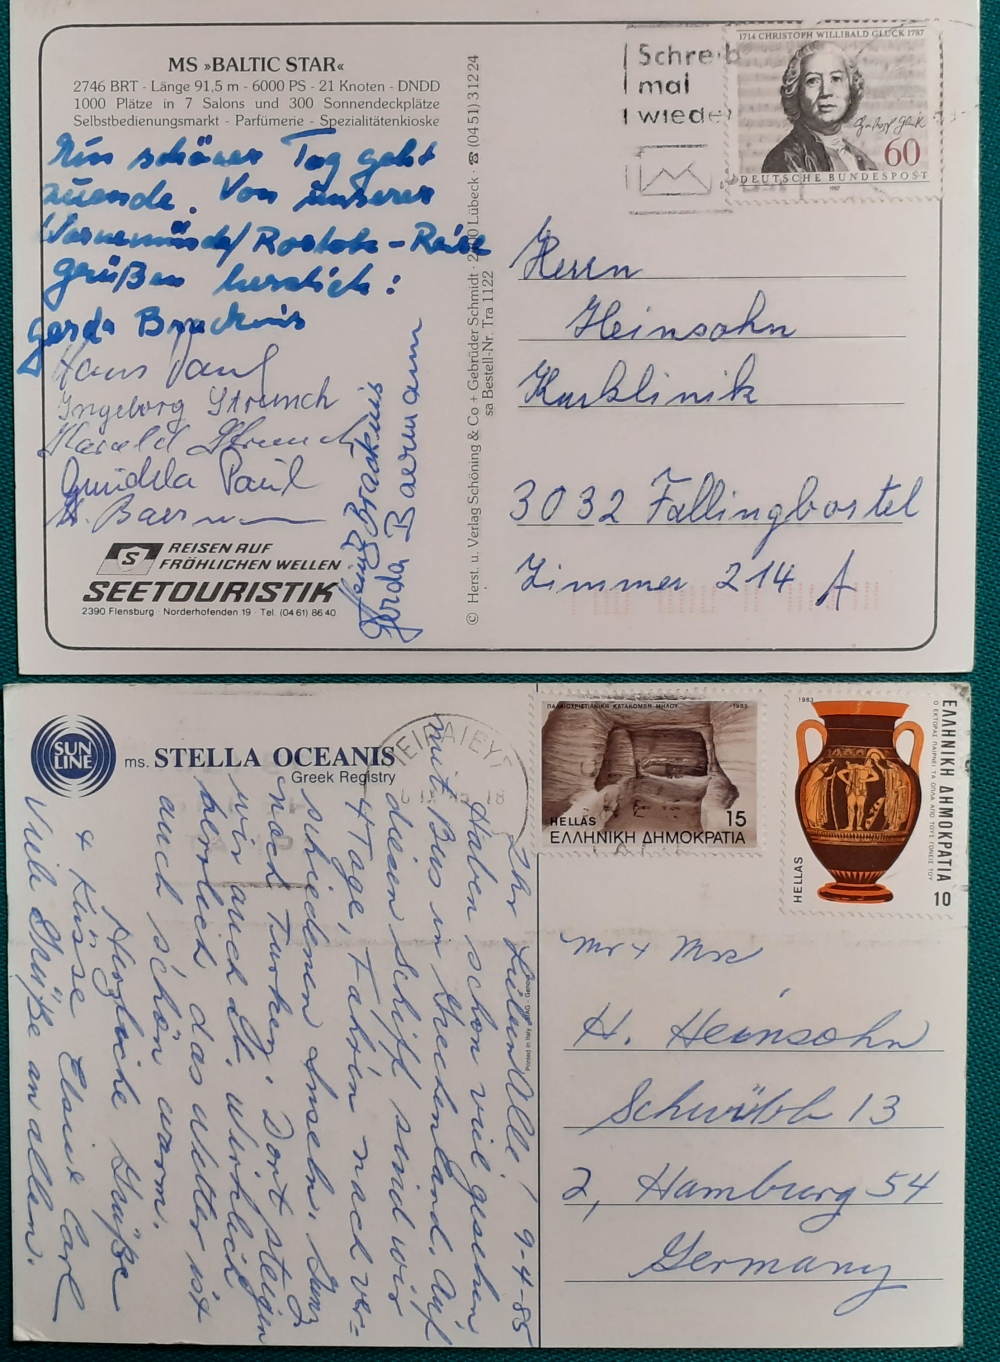 MS »BALTIC STAR«
2746 BRT - Länge 91,5 m - 6000 PS - 21 Knoten - DNDD
1000 Plätze in 7 Salons und 300 Sonnendeckplätze
Selbstbedienungsmarkt - Parfümerie - Spezialitätenkioske
Ein schöner Tag geht
zuende. Von unserer
Warnemünde/Rostock-Reise
grüßen herzlich:
Gerda Bracknis
Hans Paul
Ingeborg Strunch
Harald Strunch
Paul
H. Baermann
Bracknis
Gerda Baermann
S
REISEN AUF
FRÖHLICHEN WELLEN
SEETOURISTIK
2390 Flensburg · Norderhofenden 19 · Tel. (04 61) 86 40
© Herst. u. Verlag Schöning & Co + Gebrüder Schmidt · 2400 Lübeck · ☎ (04 51) 3 12 24
sa Bestell-Nr. Tra 1122
Schreib
mal
wieder
1714 CHRISTOPH WILLIBALD GLUCK 1787
60
DEUTSCHE BUNDESPOST
1987
Herrn
Heinsohn
Kurklinik
3032 Fallingbostel
Zimmer 214 A
SUN
LINE
ms. STELLA OCEANIS
Greek Registry
9-4-85
Ihr Lieben Alle!
Haben schon viel gesehen
mit Bus in Griechenland. Auf
diesem Schiff sind wir
4 Tage, Fahrn nach ver-
schiedenen Inseln. Ganz
nach Turkey. Dort steigen
wir auch ab. Wirklich
herrlich das Wetter ist
auch schön warm.
Herzliche Grüße
& Küsse Elsie Carl
Viele Grüße an allen.
Printed in Italy
ΠΕΙΡΑΙΕΥΣ
ΠΑΛΑΙΟΧΡΙΣΤΙΑΝΙΚΗ ΚΑΤΑΚΟΜΒΗ ΜΗΛΟΥ 1985
HELLAS 15
ΕΛΛΗΝΙΚΗ ΔΗΜΟΚΡΑΤΙΑ
1983
ΕΛΛΗΝΙΚΗ ΔΗΜΟΚΡΑΤΙΑ
Ο ΕΚΤΟΡΑΣ ΠΑΙΡΝΕΙ ΤΑ ΟΠΛΑ ΑΠΟ ΤΟΥΣ ΓΟΝΕΙΣ ΤΟΥ
HELLAS
10
Mr + Mrs
H. Heinsohn
Schwübb 13
2, Hamburg 54
Germany